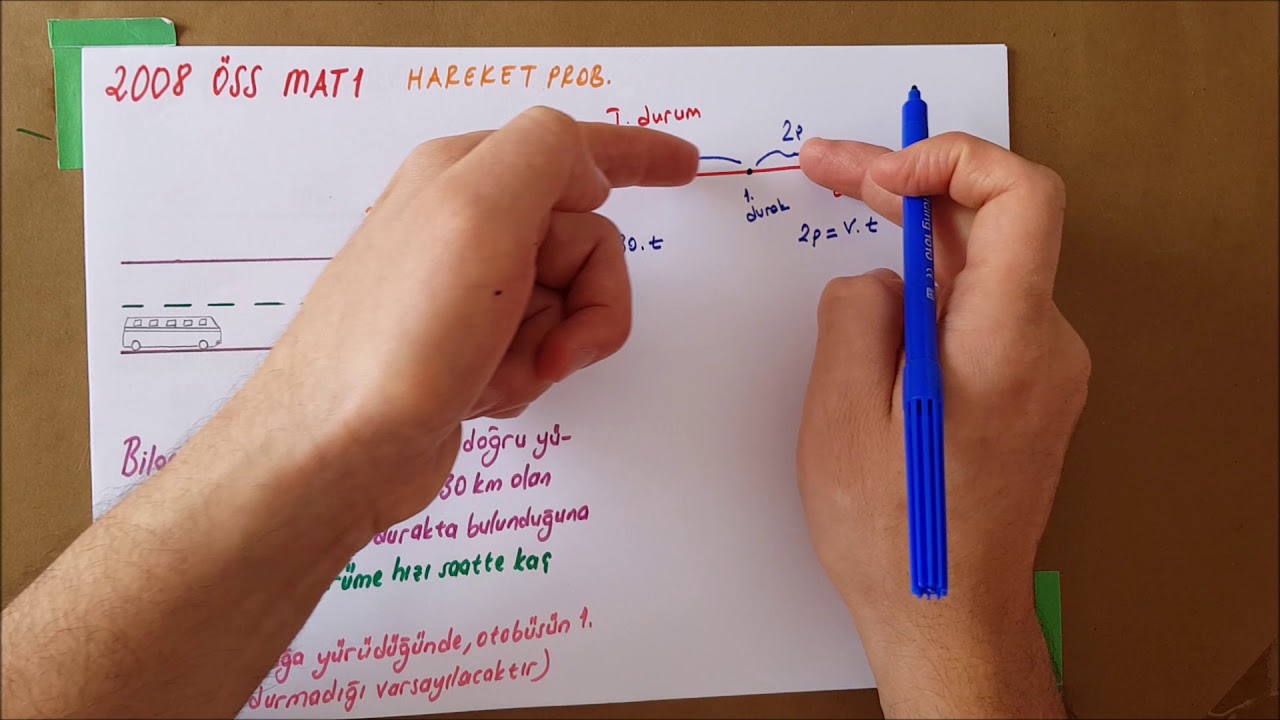 2008 ÖSS MAT1 HAREKET PROB.
I. durum
2p
1.
durak
30.t
2p = V.t
doğru yü-
30 km olan
durakta bulunduğuna
hızı saatte kaç
yürüdüğünde, otobüsün 1.
durmadığı varsayılacaktır)